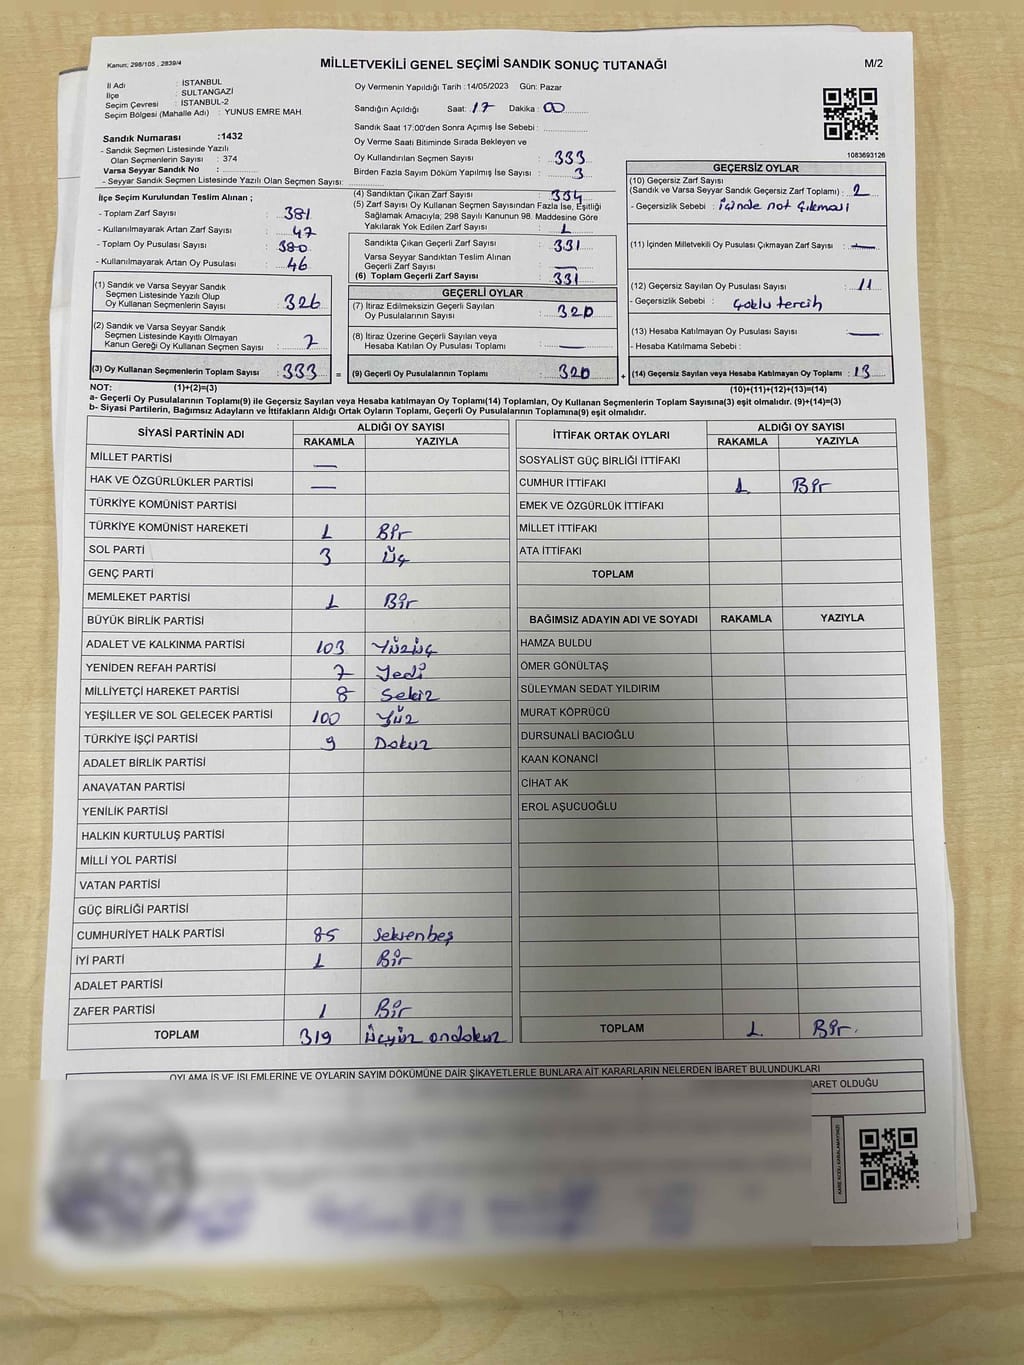 Kanun; 298/105 , 2839/4
MİLLETVEKİLİ GENEL SEÇİMİ SANDIK SONUÇ TUTANAĞI
M/2
İl Adı : İSTANBUL
İlçe : SULTANGAZİ
Seçim Çevresi : İSTANBUL-2
Seçim Bölgesi (Mahalle Adı) : YUNUS EMRE MAH
Sandık Numarası :1432
- Sandık Seçmen Listesinde Yazılı
Olan Seçmenlerin Sayısı : 374
Varsa Seyyar Sandık No :
- Seyyar Sandık Seçmen Listesinde Yazılı Olan Seçmen Sayısı:
Oy Vermenin Yapıldığı Tarih :14/05/2023 Gün: Pazar
Sandığın Açıldığı Saat: 17 Dakika : 00
Sandık Saat 17:00'den Sonra Açımış İse Sebebi :
Oy Verme Saati Bitiminde Sırada Bekleyen ve
Oy Kullandırılan Seçmen Sayısı : 333
Birden Fazla Sayım Döküm Yapılmış İse Sayısı : 3
1083693126
İlçe Seçim Kurulundan Teslim Alınan ;
- Toplam Zarf Sayısı : 381
- Kullanılmayarak Artan Zarf Sayısı : 47
- Toplam Oy Pusulası Sayısı : 380
- Kullanılmayarak Artan Oy Pusulası : 46
(1) Sandık ve Varsa Seyyar Sandık
Seçmen Listesinde Yazılı Olup
Oy Kullanan Seçmenlerin Sayısı : 326
(2) Sandık ve Varsa Seyyar Sandık
Seçmen Listesinde Kayıtlı Olmayan
Kanun Gereği Oy Kullanan Seçmen Sayısı : 7
(3) Oy Kullanan Seçmenlerin Toplam Sayısı : 333
(4) Sandıktan Çıkan Zarf Sayısı : 334
(5) Zarf Sayısı Oy Kullanan Seçmen Sayısından Fazla İse, Eşitliği
Sağlamak Amacıyla; 298 Sayılı Kanunun 98. Maddesine Göre
Yakılarak Yok Edilen Zarf Sayısı : 1
Sandıkta Çıkan Geçerli Zarf Sayısı : 331
Varsa Seyyar Sandıktan Teslim Alınan
Geçerli Zarf Sayısı : —
(6) Toplam Geçerli Zarf Sayısı : 331
GEÇERLİ OYLAR
(7) İtiraz Edilmeksizin Geçerli Sayılan
Oy Pusulalarının Sayısı : 320
(8) İtiraz Üzerine Geçerli Sayılan veya
Hesaba Katılan Oy Pusulası Toplamı : —
= (9) Geçerli Oy Pusulalarının Toplamı : 320
GEÇERSİZ OYLAR
(10) Geçersiz Zarf Sayısı
(Sandık ve Varsa Seyyar Sandık Geçersiz Zarf Toplamı) : 2
- Geçersizlik Sebebi : içinde not çıkması
(11) İçinden Milletvekili Oy Pusulası Çıkmayan Zarf Sayısı : —
(12) Geçersiz Sayılan Oy Pusulası Sayısı : 11
- Geçersizlik Sebebi : Çoklu tercih
(13) Hesaba Katılmayan Oy Pusulası Sayısı : —
- Hesaba Katılmama Sebebi :
+ (14) Geçersiz Sayılan veya Hesaba Katılmayan Oy Toplamı : 13
NOT: (1)+(2)=(3) (10)+(11)+(12)+(13)=(14)
a- Geçerli Oy Pusulalarının Toplamı(9) ile Geçersiz Sayılan veya Hesaba katılmayan Oy Toplamı(14) Toplamları, Oy Kullanan Seçmenlerin Toplam Sayısına(3) eşit olmalıdır. (9)+(14)=(3)
b- Siyasi Partilerin, Bağımsız Adayların ve İttifakların Aldığı Ortak Oyların Toplamı, Geçerli Oy Pusulalarının Toplamına(9) eşit olmalıdır.
SİYASİ PARTİNİN ADI ALDIĞI OY SAYISI
RAKAMLA YAZIYLA
MİLLET PARTİSİ —
HAK VE ÖZGÜRLÜKLER PARTİSİ —
TÜRKİYE KOMÜNİST PARTİSİ
TÜRKİYE KOMÜNİST HAREKETİ 1 Bir
SOL PARTİ 3 Üç
GENÇ PARTİ
MEMLEKET PARTİSİ 1 Bir
BÜYÜK BİRLİK PARTİSİ
ADALET VE KALKINMA PARTİSİ 103 Yüzüç
YENİDEN REFAH PARTİSİ 7 Yedi
MİLLİYETÇİ HAREKET PARTİSİ 8 Sekiz
YEŞİLLER VE SOL GELECEK PARTİSİ 100 Yüz
TÜRKİYE İŞÇİ PARTİSİ 9 Dokuz
ADALET BİRLİK PARTİSİ
ANAVATAN PARTİSİ
YENİLİK PARTİSİ
HALKIN KURTULUŞ PARTİSİ
MİLLİ YOL PARTİSİ
VATAN PARTİSİ
GÜÇ BİRLİĞİ PARTİSİ
CUMHURİYET HALK PARTİSİ 85 Seksenbeş
İYİ PARTİ 1 Bir
ADALET PARTİSİ
ZAFER PARTİSİ 1 Bir
TOPLAM 319 Üçyüz ondokuz
İTTİFAK ORTAK OYLARI ALDIĞI OY SAYISI
RAKAMLA YAZIYLA
SOSYALİST GÜÇ BİRLİĞİ İTTİFAKI
CUMHUR İTTİFAKI 1 Bir
EMEK VE ÖZGÜRLÜK İTTİFAKI
MİLLET İTTİFAKI
ATA İTTİFAKI
TOPLAM
BAĞIMSIZ ADAYIN ADI VE SOYADI RAKAMLA YAZIYLA
HAMZA BULDU
ÖMER GÖNÜLTAŞ
SÜLEYMAN SEDAT YILDIRIM
MURAT KÖPRÜCÜ
DURSUNALİ BACIOĞLU
KAAN KONANCİ
CİHAT AK
EROL AŞUCUOĞLU
TOPLAM 1 Bir.
OYLAMA İŞ VE İŞLEMLERİNE VE OYLARIN SAYIM DÖKÜMÜNE DAİR ŞİKAYETLERLE BUNLARA AİT KARARLARIN NELERDEN İBARET BULUNDUKLARI
BARET OLDUĞU
KARE KODU KARALAMAYINIZ!